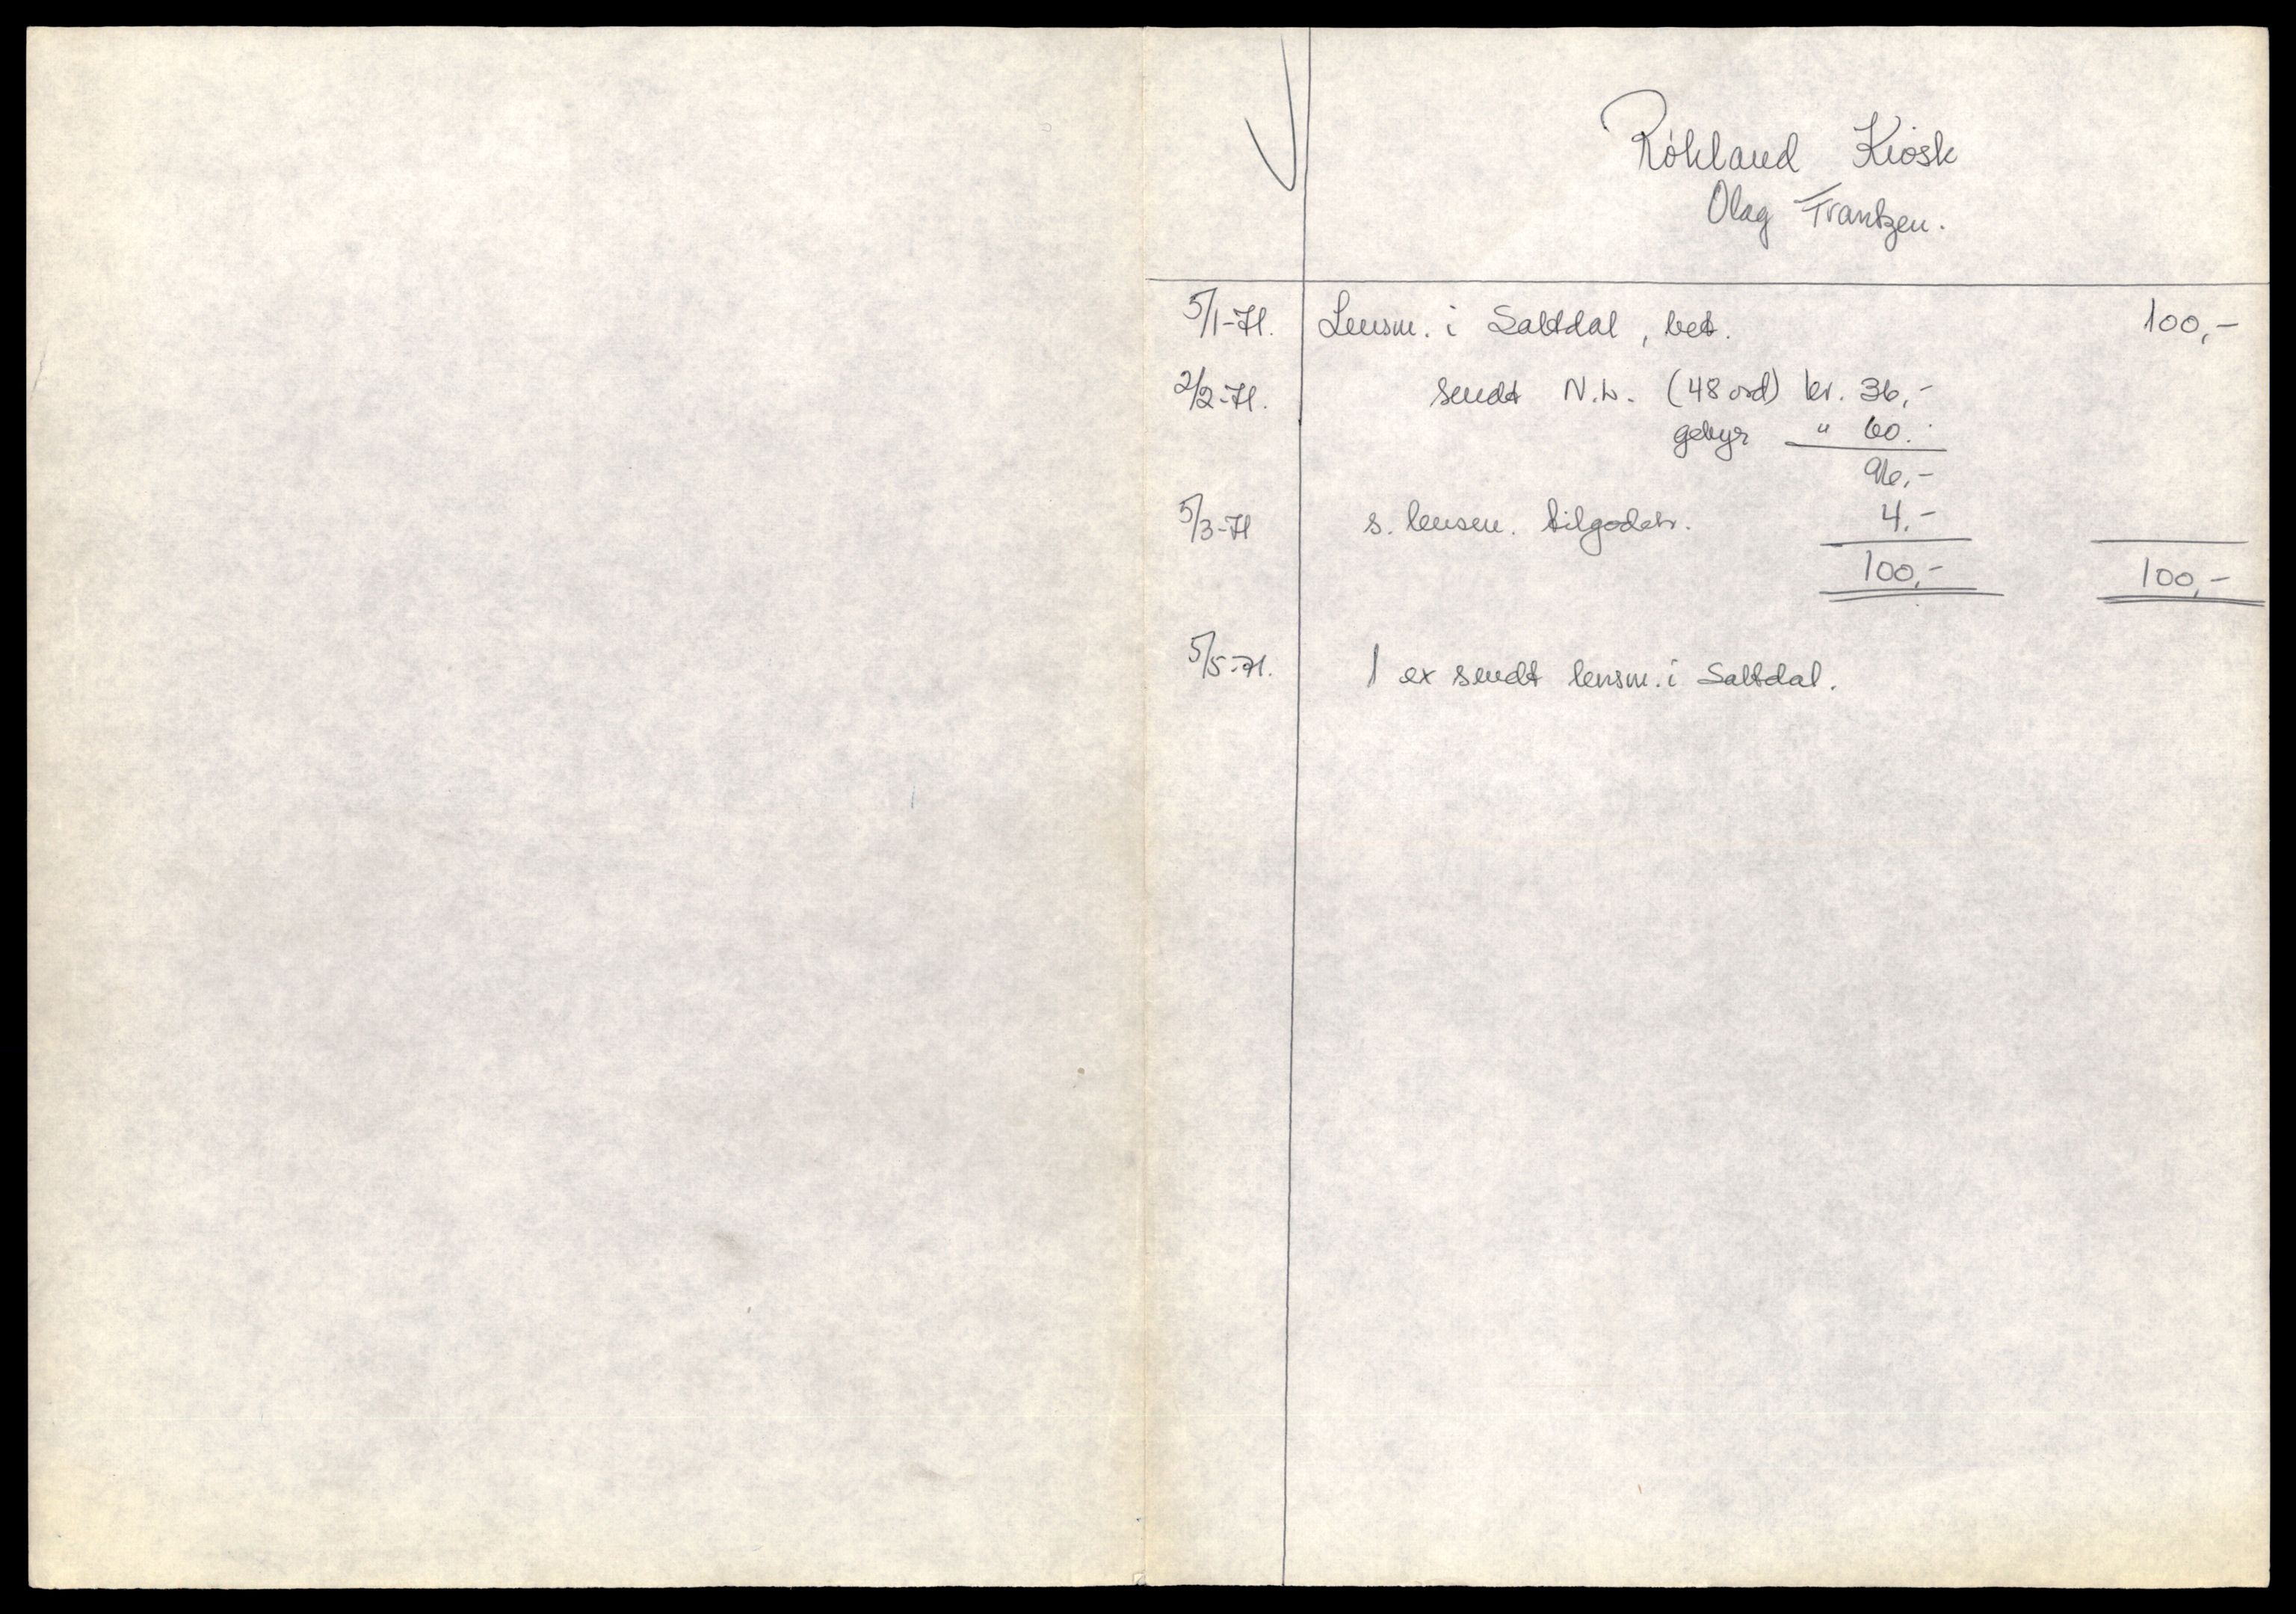 Rökland Kiosk
Olag Frantzen.
5/1-71. Lensm. i Saltdal, bet. 100,-
2/2-71. sendt N.L. (48 ord) kr. 36,-
gebyr " 60.-
96,-
5/3-71 s. lensm. tilgodeh. 4.-
100,- 100,-
5/5-71. 1 ex sendt lensm. i Saltdal.